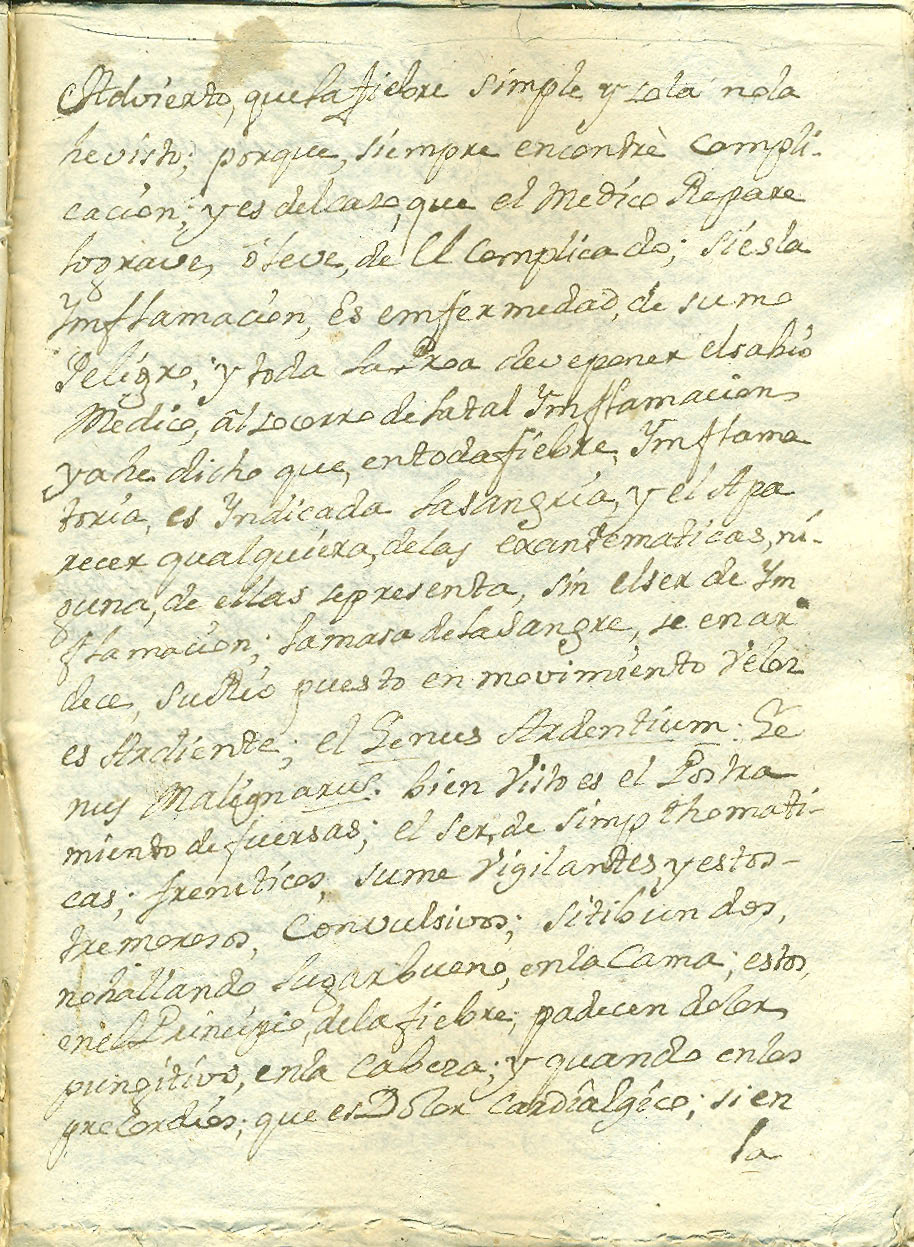 Advierto, que la fiebre simple y zola no la
he visto; porque, siempre encontrè Compli-
cacion; y es del cazo, que el Medico Repare
lo grave, ó leve, de el Complicado; si es la
Ymflamacion, Es emfermedad, de sumo
Peligro; y toda la Proa deve poner el sabio
Medico, àl zocorro de la tal Ymflamacion
ya he dicho que, en toda fiebre, Ymflama
toria, es Yndicada la sangria, y el Apa
recer qualquiera, de las exantematicas, ni-
guna, de ellas se presenta, sin el ser de Ym
flamacion; la masa de la Sangre, se enar
dece, su Rio puesto en movimiento Veloz
es Ardiente; el Genus Ardentium: Ge
nus Malignarus. bien Visto es el Postra
miento de fuersas; el ser, de simpthomati-
cas; freneticos, sume Vigilantes, y estos-
tremorosos, Convulsivos; sitibundos,
no hallando lugar bueno, en la Cama; estos,
en el Principio, de la fiebre; padecen dolor
pungitivo, en la Cabeza; y quando en los
precordios; que es Dolor Cardîalgico; si en
la